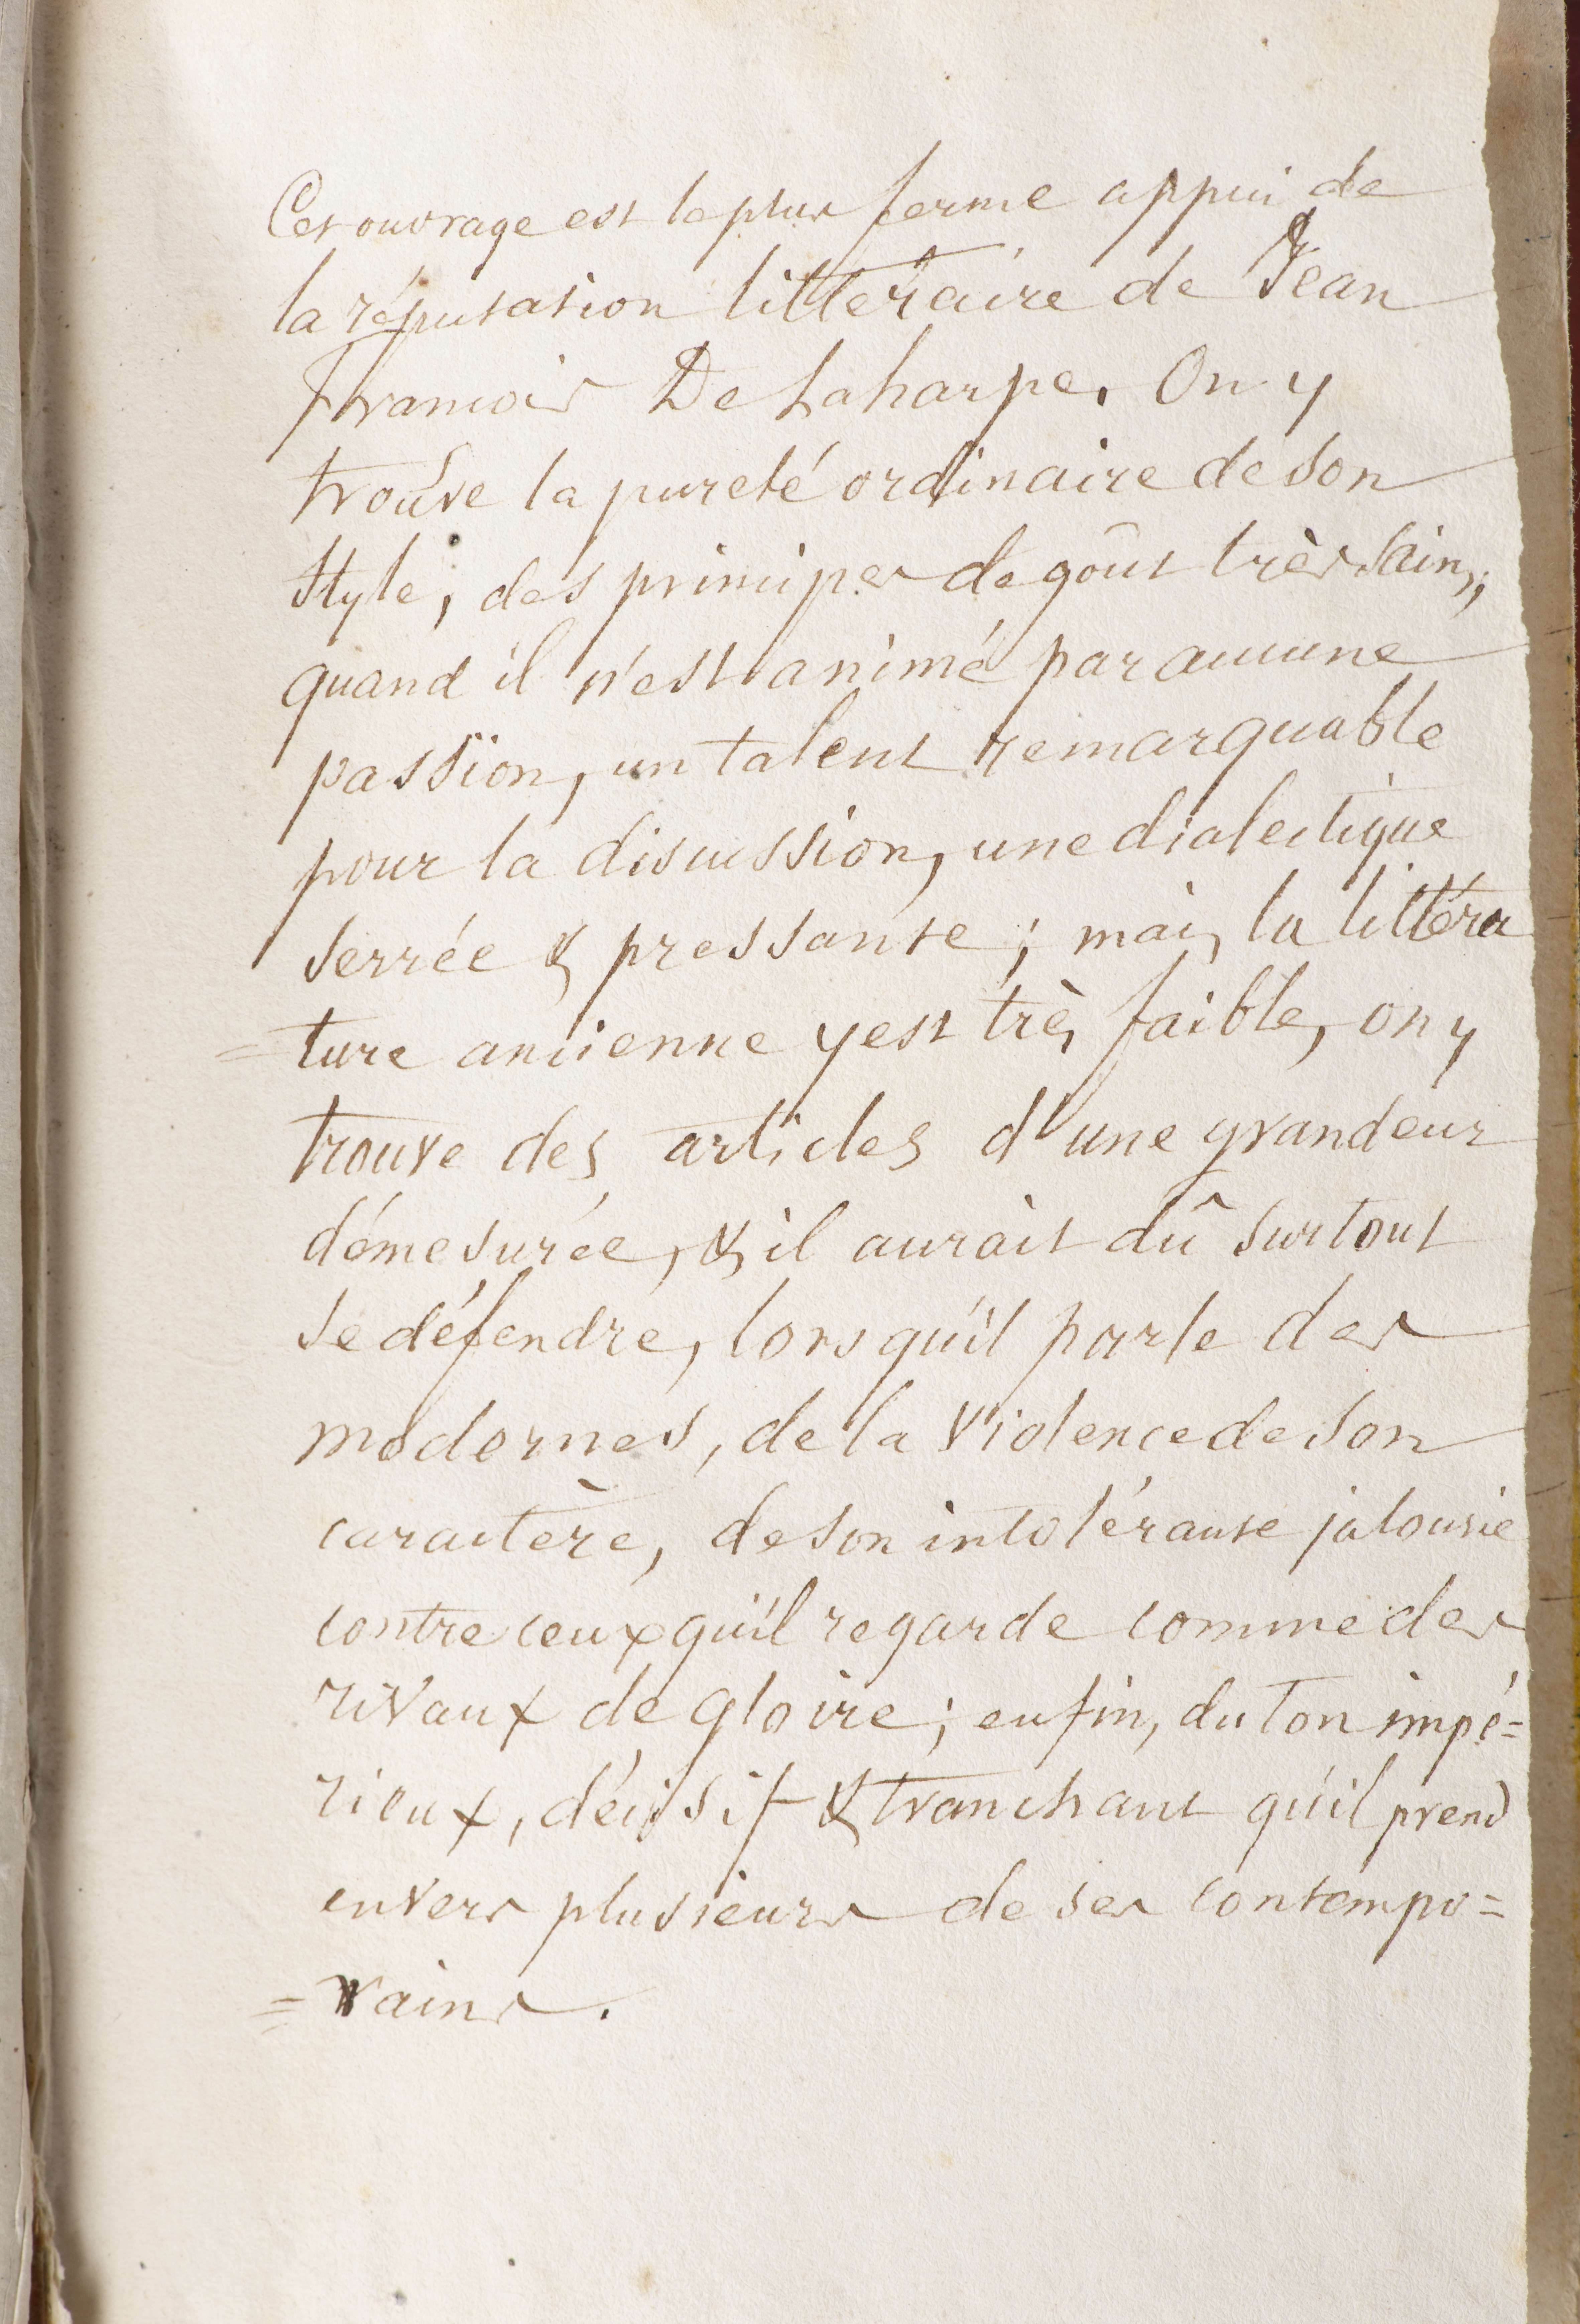 Cet ouvrage est le plus ferme appui de
la réputation littéraire de Jean
François De Laharpe. On y
trouve la pureté ordinaire de son
style, des principes de goût très sains,
quand il n'est animé par aucune
passion, un talent remarquable
pour la discussion, une dialectique
serrée & pressante ; mais la littéra
= ture ancienne y est très faible, on y
trouve des articles d'une grandeur
démesurée, & il aurait dû surtout
se défendre, lorsqu'il parle des
modernes, de la violence de son
caractère, de son intolérante jalousie
contre ceux qu'il regarde comme des
rivaux de gloire ; enfin, du ton impé=
rieux, décisif & tranchant qu'il prend
envers plusieurs de ses contempo=
= rains.